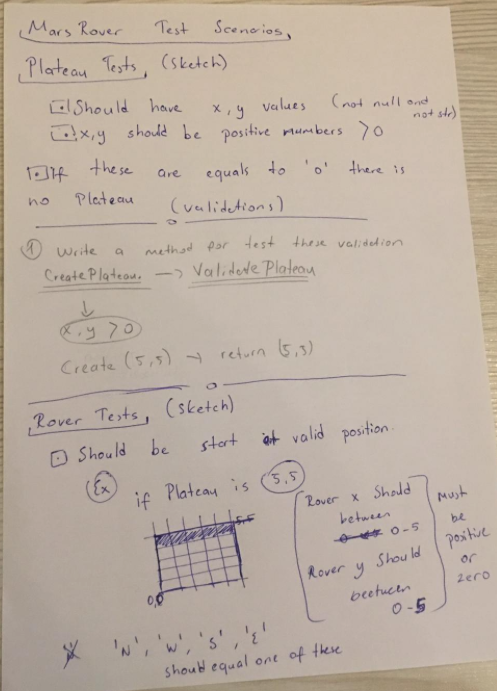 Mars Rover Test Scenarios,
Plateau Tests, (Sketch)
Should have x, y values (not null and
not str)
x,y should be positive numbers >0
If these are equals to 'o' there is
no Plateau (validations)
1 Write a method for test these validation
CreatePlateau. → ValidatePlateau
↓
x, y > 0
Create (5,5) → return (5,5)
Rover Tests, (Sketch)
Should be start valid position.
Ex if Plateau is (5,5)
5,5
0,0
Rover x Should
between
0-5
Rover y Should
beetween
0-5
Must
be
positive
or
zero
'N', 'W', 'S', 'E'
should equal one of these